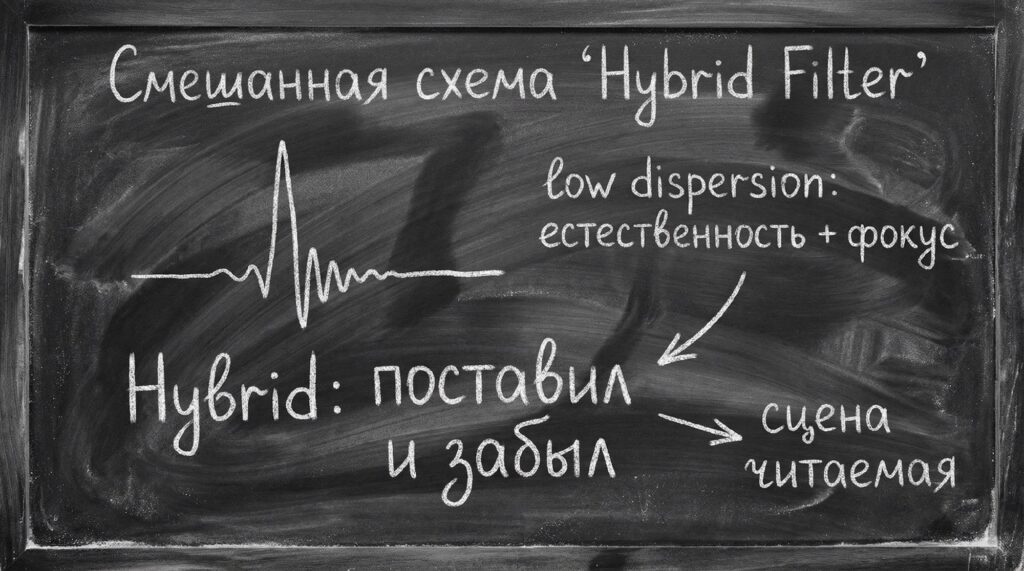 Смешанная схема ‘Hybrid Filter’
low dispersion:
естественность + фокус
Hybrid: поставил
и забыл
сцена
читаемая